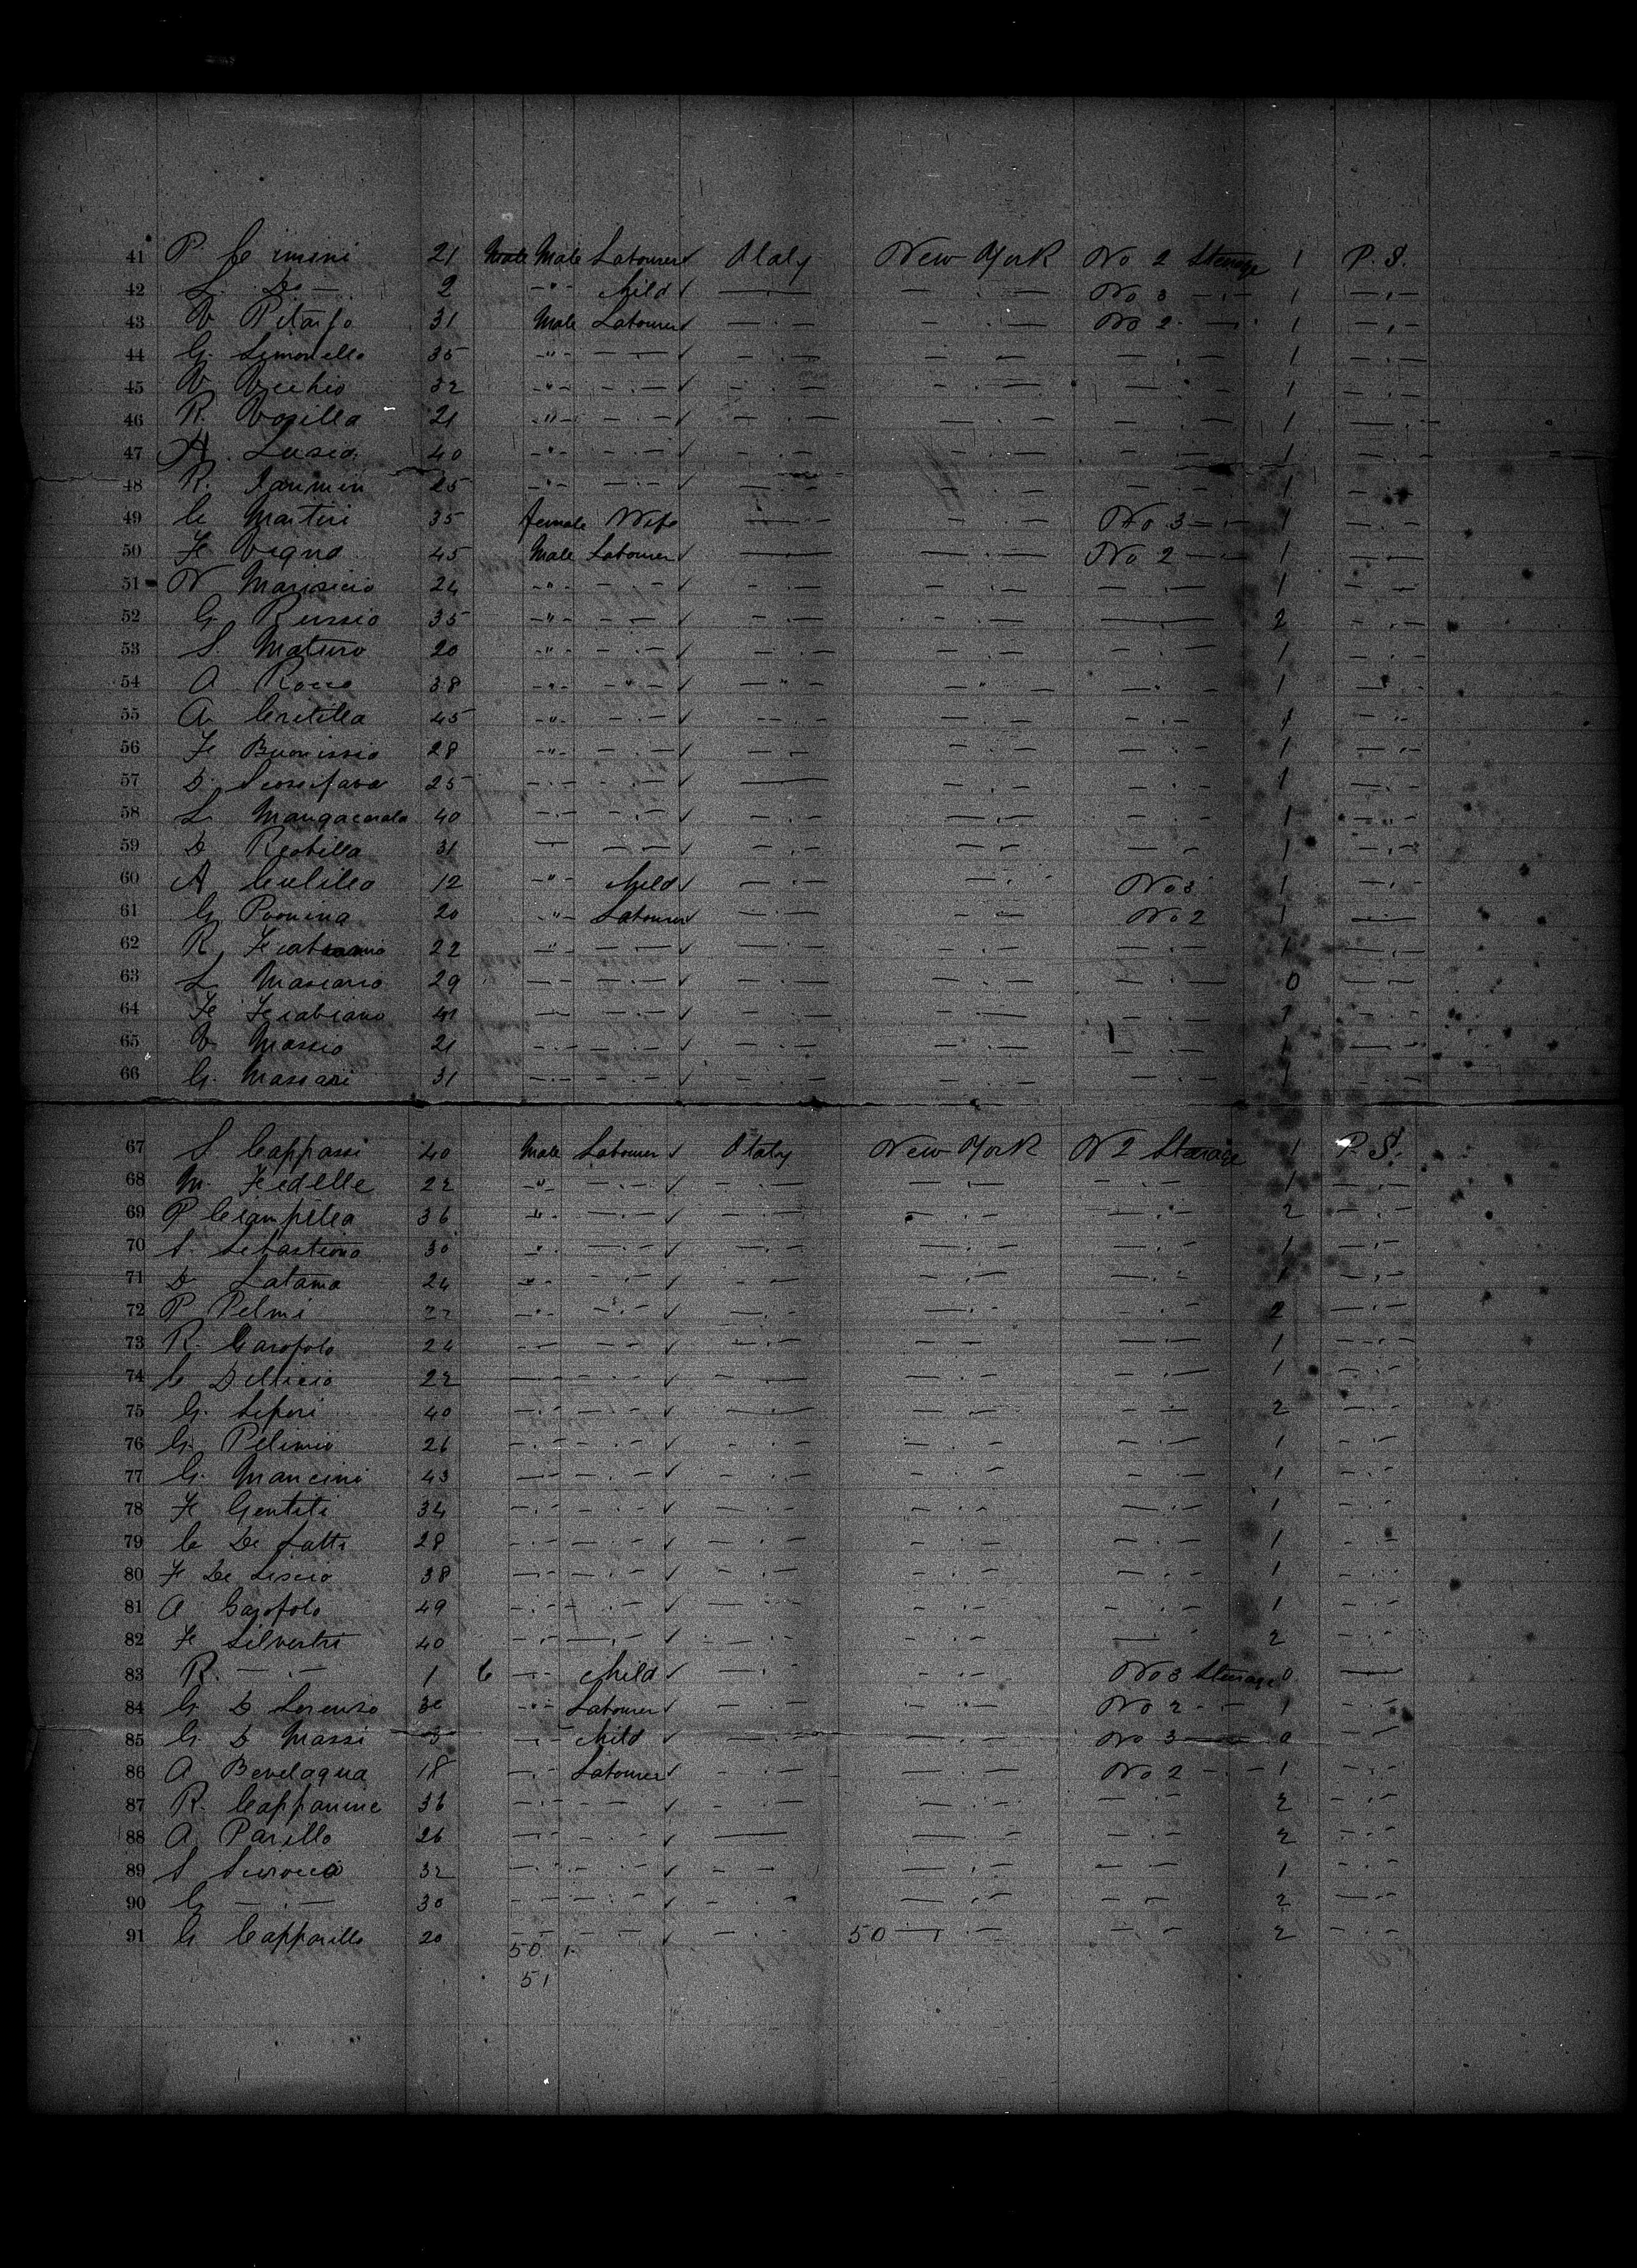 41 P. Cemini 21 Male Male Labourer ✓ Italy New York No 2 Steerage 1 P. S.
42 L. Do — 2 — " — Child ✓ — — . — No 3 — . — 1 — . —
43 V Pitarfo 31 Male Labourer ✓ — . — — . — No 2 — . 1 — . —
44 G. Simonello 35 — " — — . — ✓ — . — — . — — . — 1 — . —
45 V Vechio 32 — " — — . — ✓ — . — — . — — . — 1 — . —
46 R. Vosilla 21 — " — — . — ✓ — . — — . — — . — 1 — . —
47 A. Lusio 40 — " — — . — ✓ — . — — . — — . — 1 — . —
48 R. Ianmin 25 — " — — . — ✓ — . — — . — — . — 1 — . —
49 C Martiri 35 female Wife — . — — . — No 3 — . — 1 — . —
50 F Vegno 45 Male Labourer ✓ — — . — No 2 — . — 1 — . —
51 N Marisicio 24 — " — — . — ✓ — . — — . — — . — 1 — . —
52 G. Russio 35 — " — — . — ✓ — . — — . — — 2 — . —
53 S. Maturo 20 — " — — . — ✓ — . — — . — — . — 1 — . —
54 A Rocco 38 — " — — " — ✓ — " — — " — — . — 1 — " —
55 A. Critilla 45 — " — — . — ✓ — . — — . — — . — 1 — . —
56 F Buonissio 28 — " — — . — ✓ — . — — . — — . — 1 — . —
57 D. 25 — . — — . — ✓ — — . — — . — 1 — . —
58 L. Mangacorala 40 — . — — . — ✓ — . — — . — — . — 1 — . —
59 D. Reobilla 31 — — . — ✓ — . — — . — — . — 1 — . —
60 A Culillo 12 — " — Child ✓ — . — — . — No 3 1 — . —
61 G. Poonina 20 — " — Labourer ✓ — . — — . — No 2 1 — . —
62 R. 22 — " — — . — ✓ — . — — . — — . — 1 — . —
63 L Masiario 29 — . — — . — ✓ — . — — . — — . — 0 — . —
64 F Fciabiano 41 — . — — . — ✓ — . — — . — — . — — . —
65 V. Massio 21 — . — — . — ✓ — . — — . — — . — 1 — . —
66 G. Massari 31 — . — — . — ✓ — . — — . — — . — 1 — . —
67 S Cappassi 40 Male Labourer ✓ Italy New York N 2 Steerage 1 P. S.
68 M. Fedelle 22 — " — — . — ✓ — . — — . — — . — 1 — . —
69 P Ciampitea 36 — " — — . — ✓ — . — — . — — . — 2 — . —
70 S. Sebastiono 30 — " — — . — ✓ — . — — . — — . — 1 — . —
71 D Latama 24 — " — — . — ✓ — . — — . — — . — 1 — . —
72 P Pelmi 22 — " — — . — ✓ — . — — . — — . — 2 — . —
73 R. Garofolo 24 — . — — . — ✓ — . — — . — — . — 1 — . —
74 C Dellicio 22 — . — — . — ✓ — . — — . — — . — 1 — . —
75 G. Seperi 40 — . — — . — ✓ — . — — . — — . — 2 — . —
76 G. Pelimio 26 — . — — . — ✓ — . — — . — — . — 1 — . —
77 G. Mancini 43 — . — — . — ✓ — . — — . — — . — 1 — . —
78 F Gentiti 34 — . — — . — ✓ — . — — . — — . — 1 — . —
79 C De Latti 28 — . — — . — ✓ — . — — . — — . — 1 — . —
80 F De Liscio 38 — . — — . — ✓ — . — — . — — . — 1 — . —
81 A Garofolo 49 — . — — . — ✓ — . — — . — — . — 1 — . —
82 F Silvestri 40 — . — — . — ✓ — . — — . — — . — 2 — . —
83 R. — . — 1 6 — . — Child ✓ — . — — . — No 3 Steerage 0 —
84 G D Lorenzo 30 — " — Labourer ✓ — . — — . — No 2 — . — 1 — . —
85 G. D Massi 3 — . — Child ✓ — . — — . — No 3 — 0 — . —
86 A Bevelaqua 18 — . — Labourer ✓ — . — — . — No 2 — . — 1 — . —
87 R. Cappanine 36 — . — — . — ✓ — . — — . — — . — 2 — . —
88 A Parillo 26 — . — — . — ✓ — — . — — . — 2 — . —
89 S Surocco 32 — . — — . — ✓ — . — — . — — . — 1 — . —
90 G — . — 30 — . — — . — ✓ — . — — . — — . — 2 — . —
91 G Capparillo 20 — . — — . — ✓ — . — 50 — . — — . — 2 — . —
50 1
51